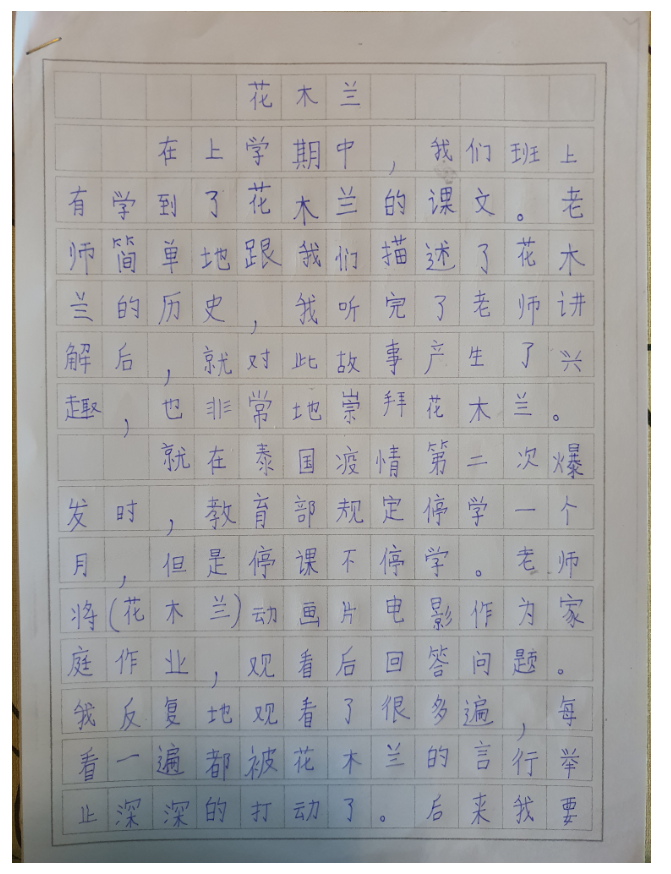 花木兰
在上学期中,我们班上
有学到了花木兰的课文。老
师简单地跟我们描述了花木
兰的历史,我听完了老师讲
解后,就对此故事产生了兴
趣,也非常地崇拜花木兰。
就在泰国疫情第二次爆
发时,教育部规定停学一个
月,但是停课不停学。老师
将(花木兰)动画片电影作为家
庭作业,观看后回答问题。
我反复地观看了很多遍,每
看一遍都被花木兰的言行举
止深深的打动了。后来我要